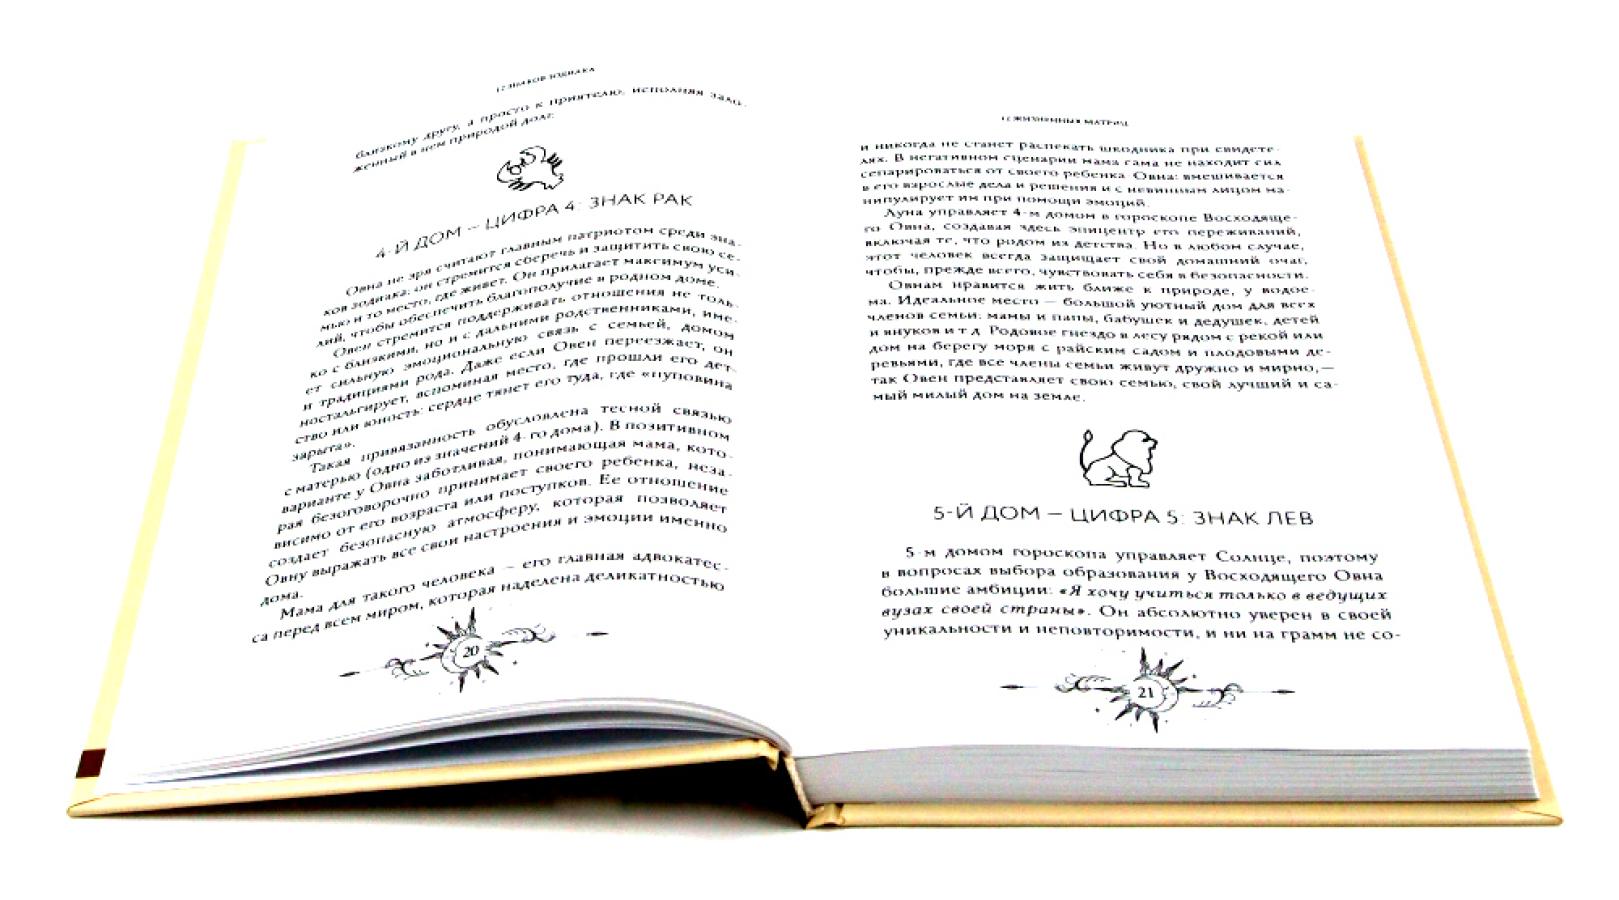 12 ЗНАКОВ ЗОДИАКА
близкому другу, а просто к приятелю, исполняя зало-
женный в нем природой долг.
4-Й ДОМ – ЦИФРА 4: ЗНАК РАК
Овна не зря считают главным патриотом среди зна-
ков зодиака: он стремится сберечь и защитить свою се-
мью и то место, где живет. Он прилагает максимум уси-
лий, чтобы обеспечить благополучие в родном доме.
Овен стремится поддерживать отношения не толь-
ко с близкими, но и с дальними родственниками, име-
ет сильную эмоциональную связь с семьей, домом
и традициями рода. Даже если Овен переезжает, он
ностальгирует, вспоминая место, где прошли его дет-
ство или юность: сердце тянет его туда, где «пуповина
зарыта».
Такая привязанность обусловлена тесной связью
с матерью (одно из значений 4-го дома). В позитивном
варианте у Овна заботливая, понимающая мама, кото-
рая безоговорочно принимает своего ребенка, неза-
висимо от его возраста или поступков. Ее отношение
создает безопасную атмосферу, которая позволяет
Овну выражать все свои настроения и эмоции именно
дома.
Мама для такого человека – его главная адвокатес-
са перед всем миром, которая наделена деликатностью
20
12 ЖИЗНЕННЫХ МАТРИЦ
и никогда не станет распекать шкодника при свидете-
лях. В негативном сценарии мама сама не находит сил
сепарироваться от своего ребенка Овна: вмешивается
в его взрослые дела и решения и с невинным лицом ма-
нипулирует им при помощи эмоций.
Луна управляет 4-м домом в гороскопе Восходяще-
го Овна, создавая здесь эпицентр его переживаний,
включая те, что родом из детства. Но в любом случае,
этот человек всегда защищает свой домашний очаг,
чтобы, прежде всего, чувствовать себя в безопасности.
Овнам нравится жить ближе к природе, у водое-
ма. Идеальное место — большой уютный дом для всех
членов семьи: мамы и папы, бабушек и дедушек, детей
и внуков и т д. Родовое гнездо в лесу рядом с рекой или
дом на берегу моря с райским садом и плодовыми де-
ревьями, где все члены семьи живут дружно и мирно,—
так Овен представляет свою семью, свой лучший и са-
мый милый дом на земле.
5-Й ДОМ – ЦИФРА 5: ЗНАК ЛЕВ
5-м домом гороскопа управляет Солнце, поэтому
в вопросах выбора образования у Восходящего Овна
большие амбиции: «Я хочу учиться только в ведущих
вузах своей страны». Он абсолютно уверен в своей
уникальности и неповторимости, и ни на грамм не со-
21